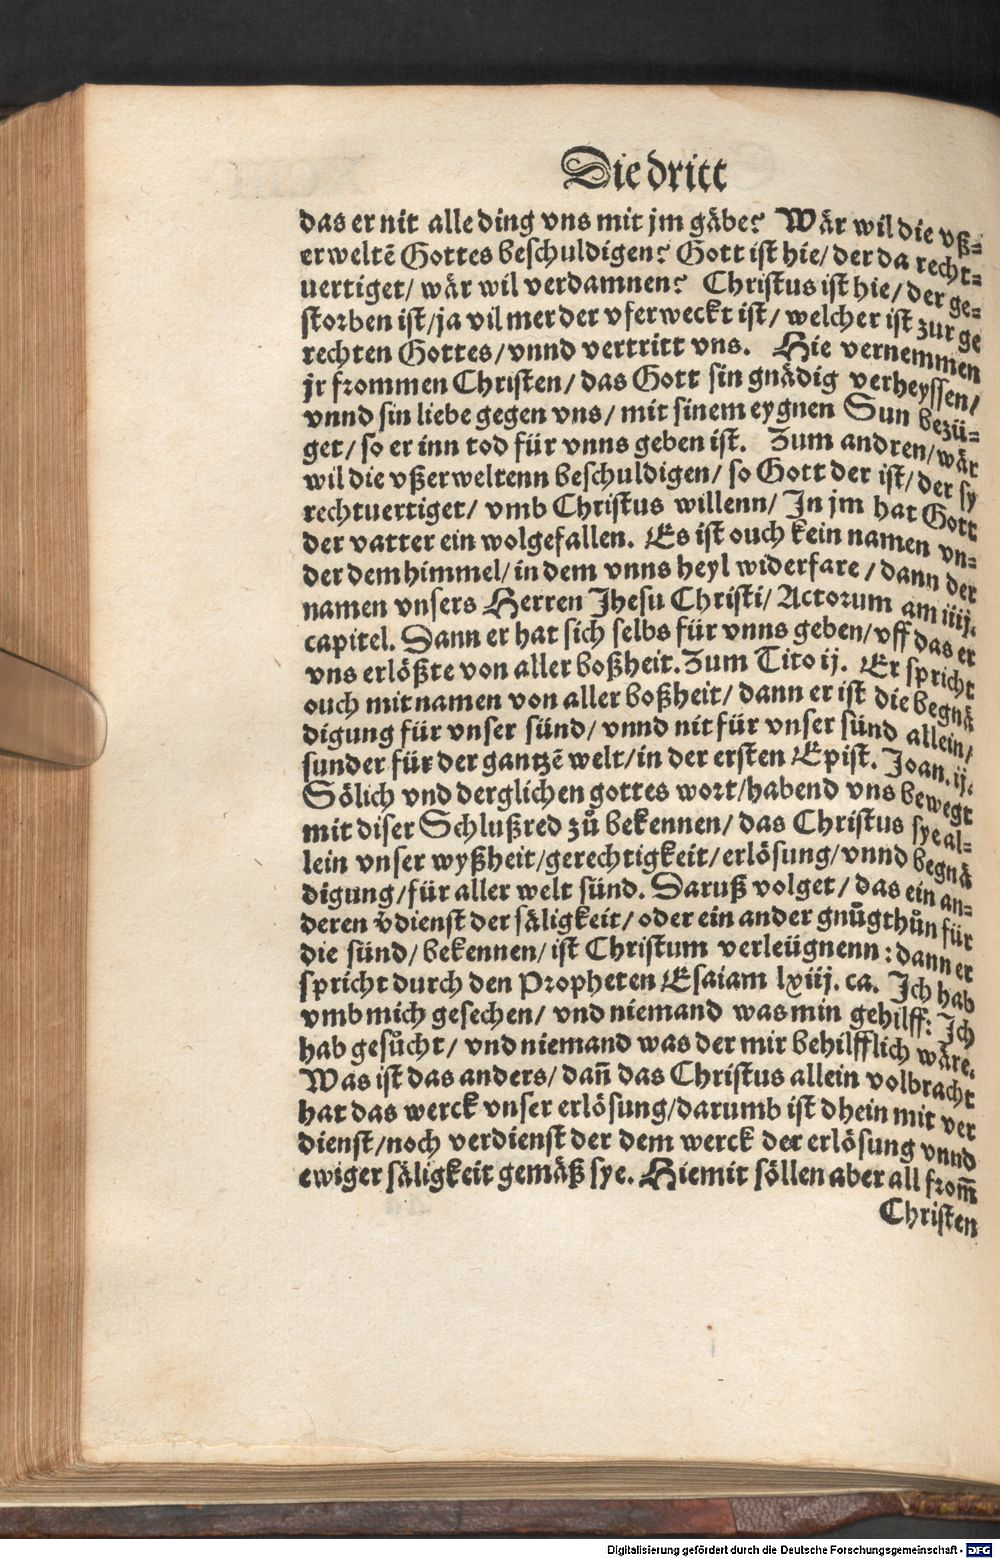 Die dritt
das er nit alle ding vns mit jm gäbe? Wär wil die vß⸗
erweltē Gottes beschuldigen? Gott ist hie/ der da recht⸗
uertiget/ wär wil verdamnen? Christus ist hie/ der ge⸗
storben ist/ ja vil mer der vferweckt ist/ welcher ist zur ge
rechten Gottes/ vnnd vertritt vns. Hie vernemmen
jr frommen Christen/ das Gott sin gnädig verheyssen/
vnnd sin liebe gegen vns/ mit sinem eygnen Sun bezü⸗
get/ so er inn tod für vnns geben ist. Zum andren/ wär
wil die vßerweltenn beschuldigen/ so Gott der ist/ der sy
rechtuertiget/ vmb Christus willenn/ In jm hat Gott
der vatter ein wolgefallen. Es ist ouch kein namen vn⸗
der dem himmel/ in dem vnns heyl widerfare/ dann der
namen vnsers Herren Jhesu Christi/ Actorum am iiij.
capitel. Dann er hat sich selbs für vnns geben/ vff das er
vns erlößte von aller boßheit. Zum Tito ij. Er spricht
ouch mit namen von aller boßheit/ dann er ist die begnä
digung für vnser sünd/ vnnd nit für vnser sünd allein/
sunder für der gantzē welt/ in der ersten Epist. Joan. ij.
Sölich vnd derglichen gottes wort/ habend vns bewegt
mit diser Schlußred zů bekennen/ das Christus sye al⸗
lein vnser wyßheit/ gerechtigkeit/ erlösung/ vnnd begnä
digung/ für aller welt sünd. Daruß volget/ das ein an⸗
deren v̄dienst der säligkeit/ oder ein ander gnůgthůn für
die sünd/ bekennen/ ist Christum verleügnenn: dann er
spricht durch den Propheten Esaiam lxiij. ca. Ich hab
vmb mich gesechen/ vnd niemand was min gehilff: Ich
hab gesůcht/ vnd niemand was der mir behilfflich wäre.
Was ist das anders/ dañ das Christus allein volbracht
hat das werck vnser erlösung/ darumb ist dhein mit ver
dienst/ noch verdienst der dem werck der erlösung vnnd
ewiger säligkeit gemäß sye. Hiemit söllen aber all from̄
Christen
Digitalisierung gefördert durch die Deutsche Forschungsgemeinschaft - DFG